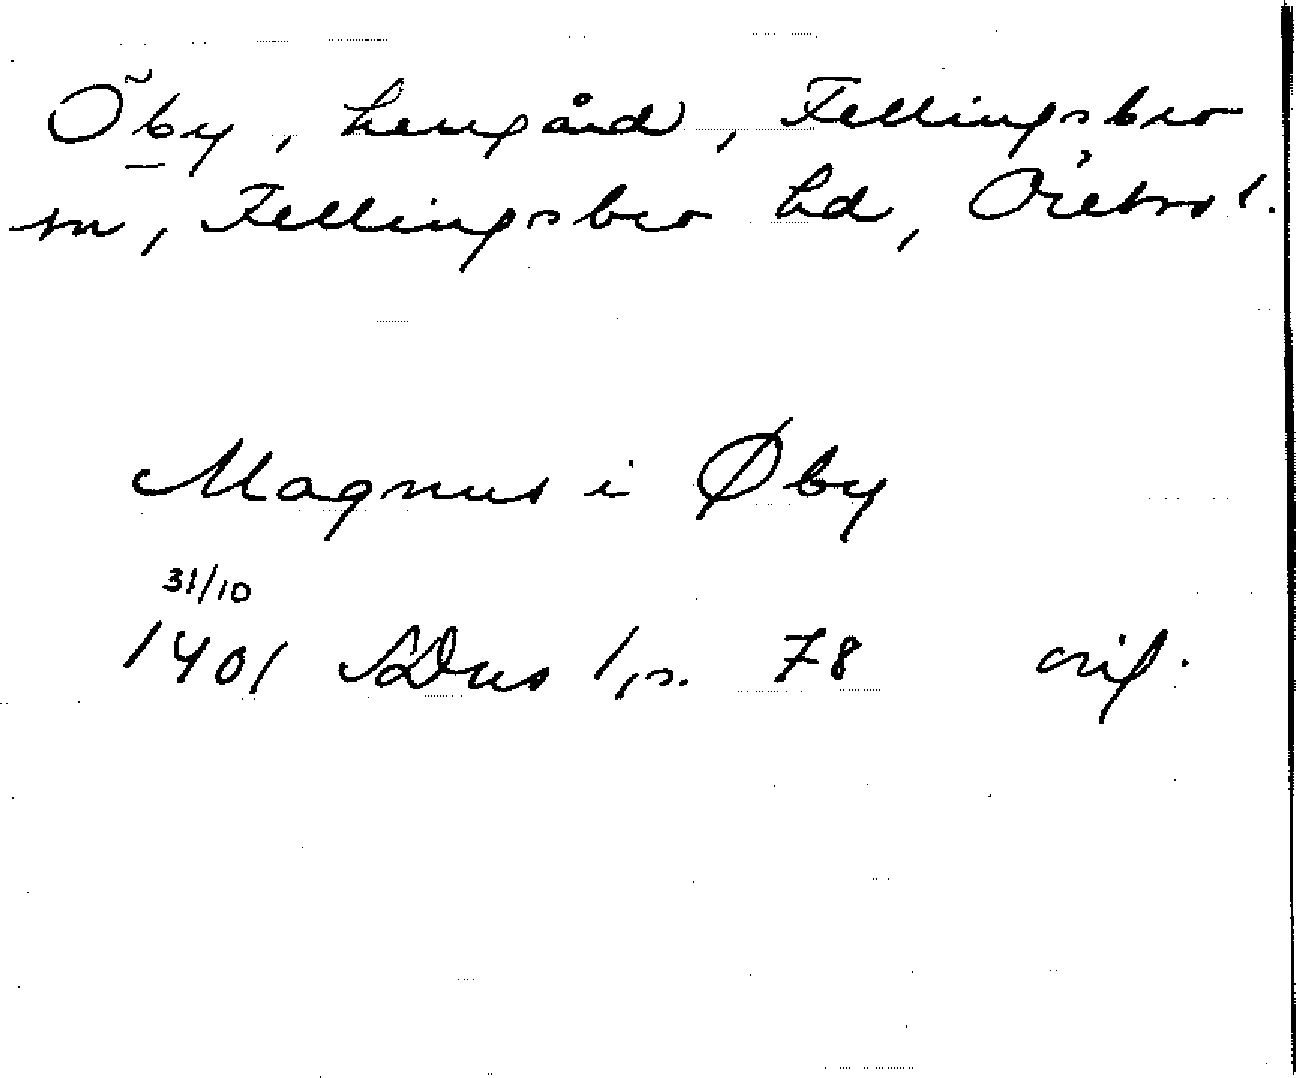 Öby, herrgård, Fellingsbro
sn, Fellingsbro hd, Örebro l.
Magnus i Øby
31/10
1401 SDns 1, s. 78 orig.